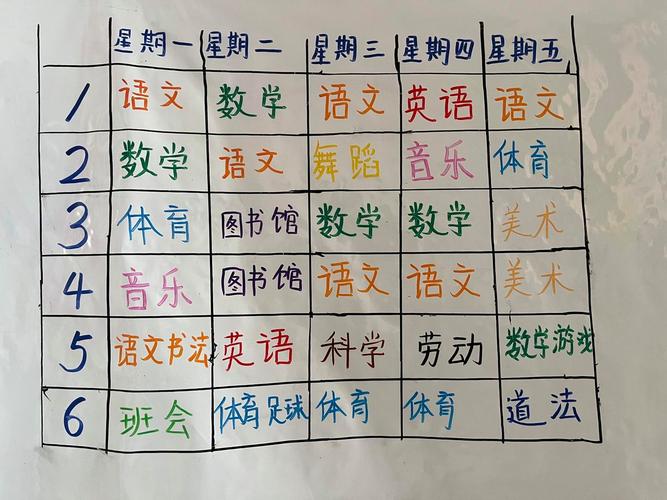 星期一 星期二 星期三 星期四 星期五
1 语文 数学 语文 英语 语文
2 数学 语文 舞蹈 音乐 体育
3 体育 图书馆 数学 数学 美术
4 音乐 图书馆 语文 语文 美术
5 语文书法 英语 科学 劳动 数学游戏
6 班会 体育足球 体育 体育 道法